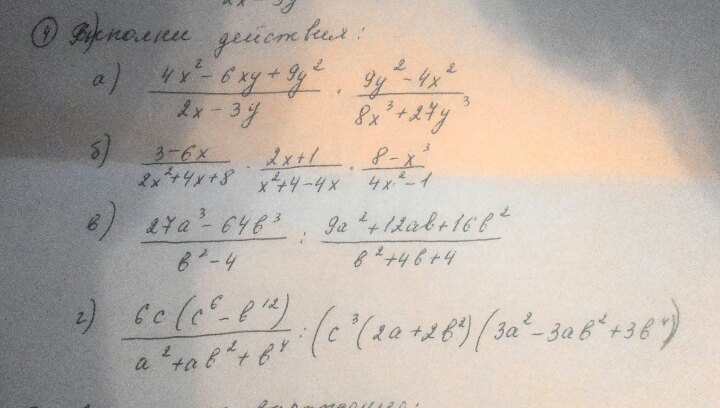 2x-3y
④ Выполни действия:
а) (4x² - 6xy + 9y²)/(2x - 3y) · (9y² - 4x²)/(8x³ + 27y³)
б) (3-6x)/(2x²+4x+8) · (2x+1)/(x²+4-4x) · (8-x³)/(4x²-1)
в) (27a³ - 64b³)/(b² - 4) : (9a² + 12ab + 16b²)/(b² + 4b + 4)
г) (6c(c⁶ - b¹²))/(a² + ab² + b⁴) : (c³(2a + 2b²)(3a² - 3ab² + 3b⁴))